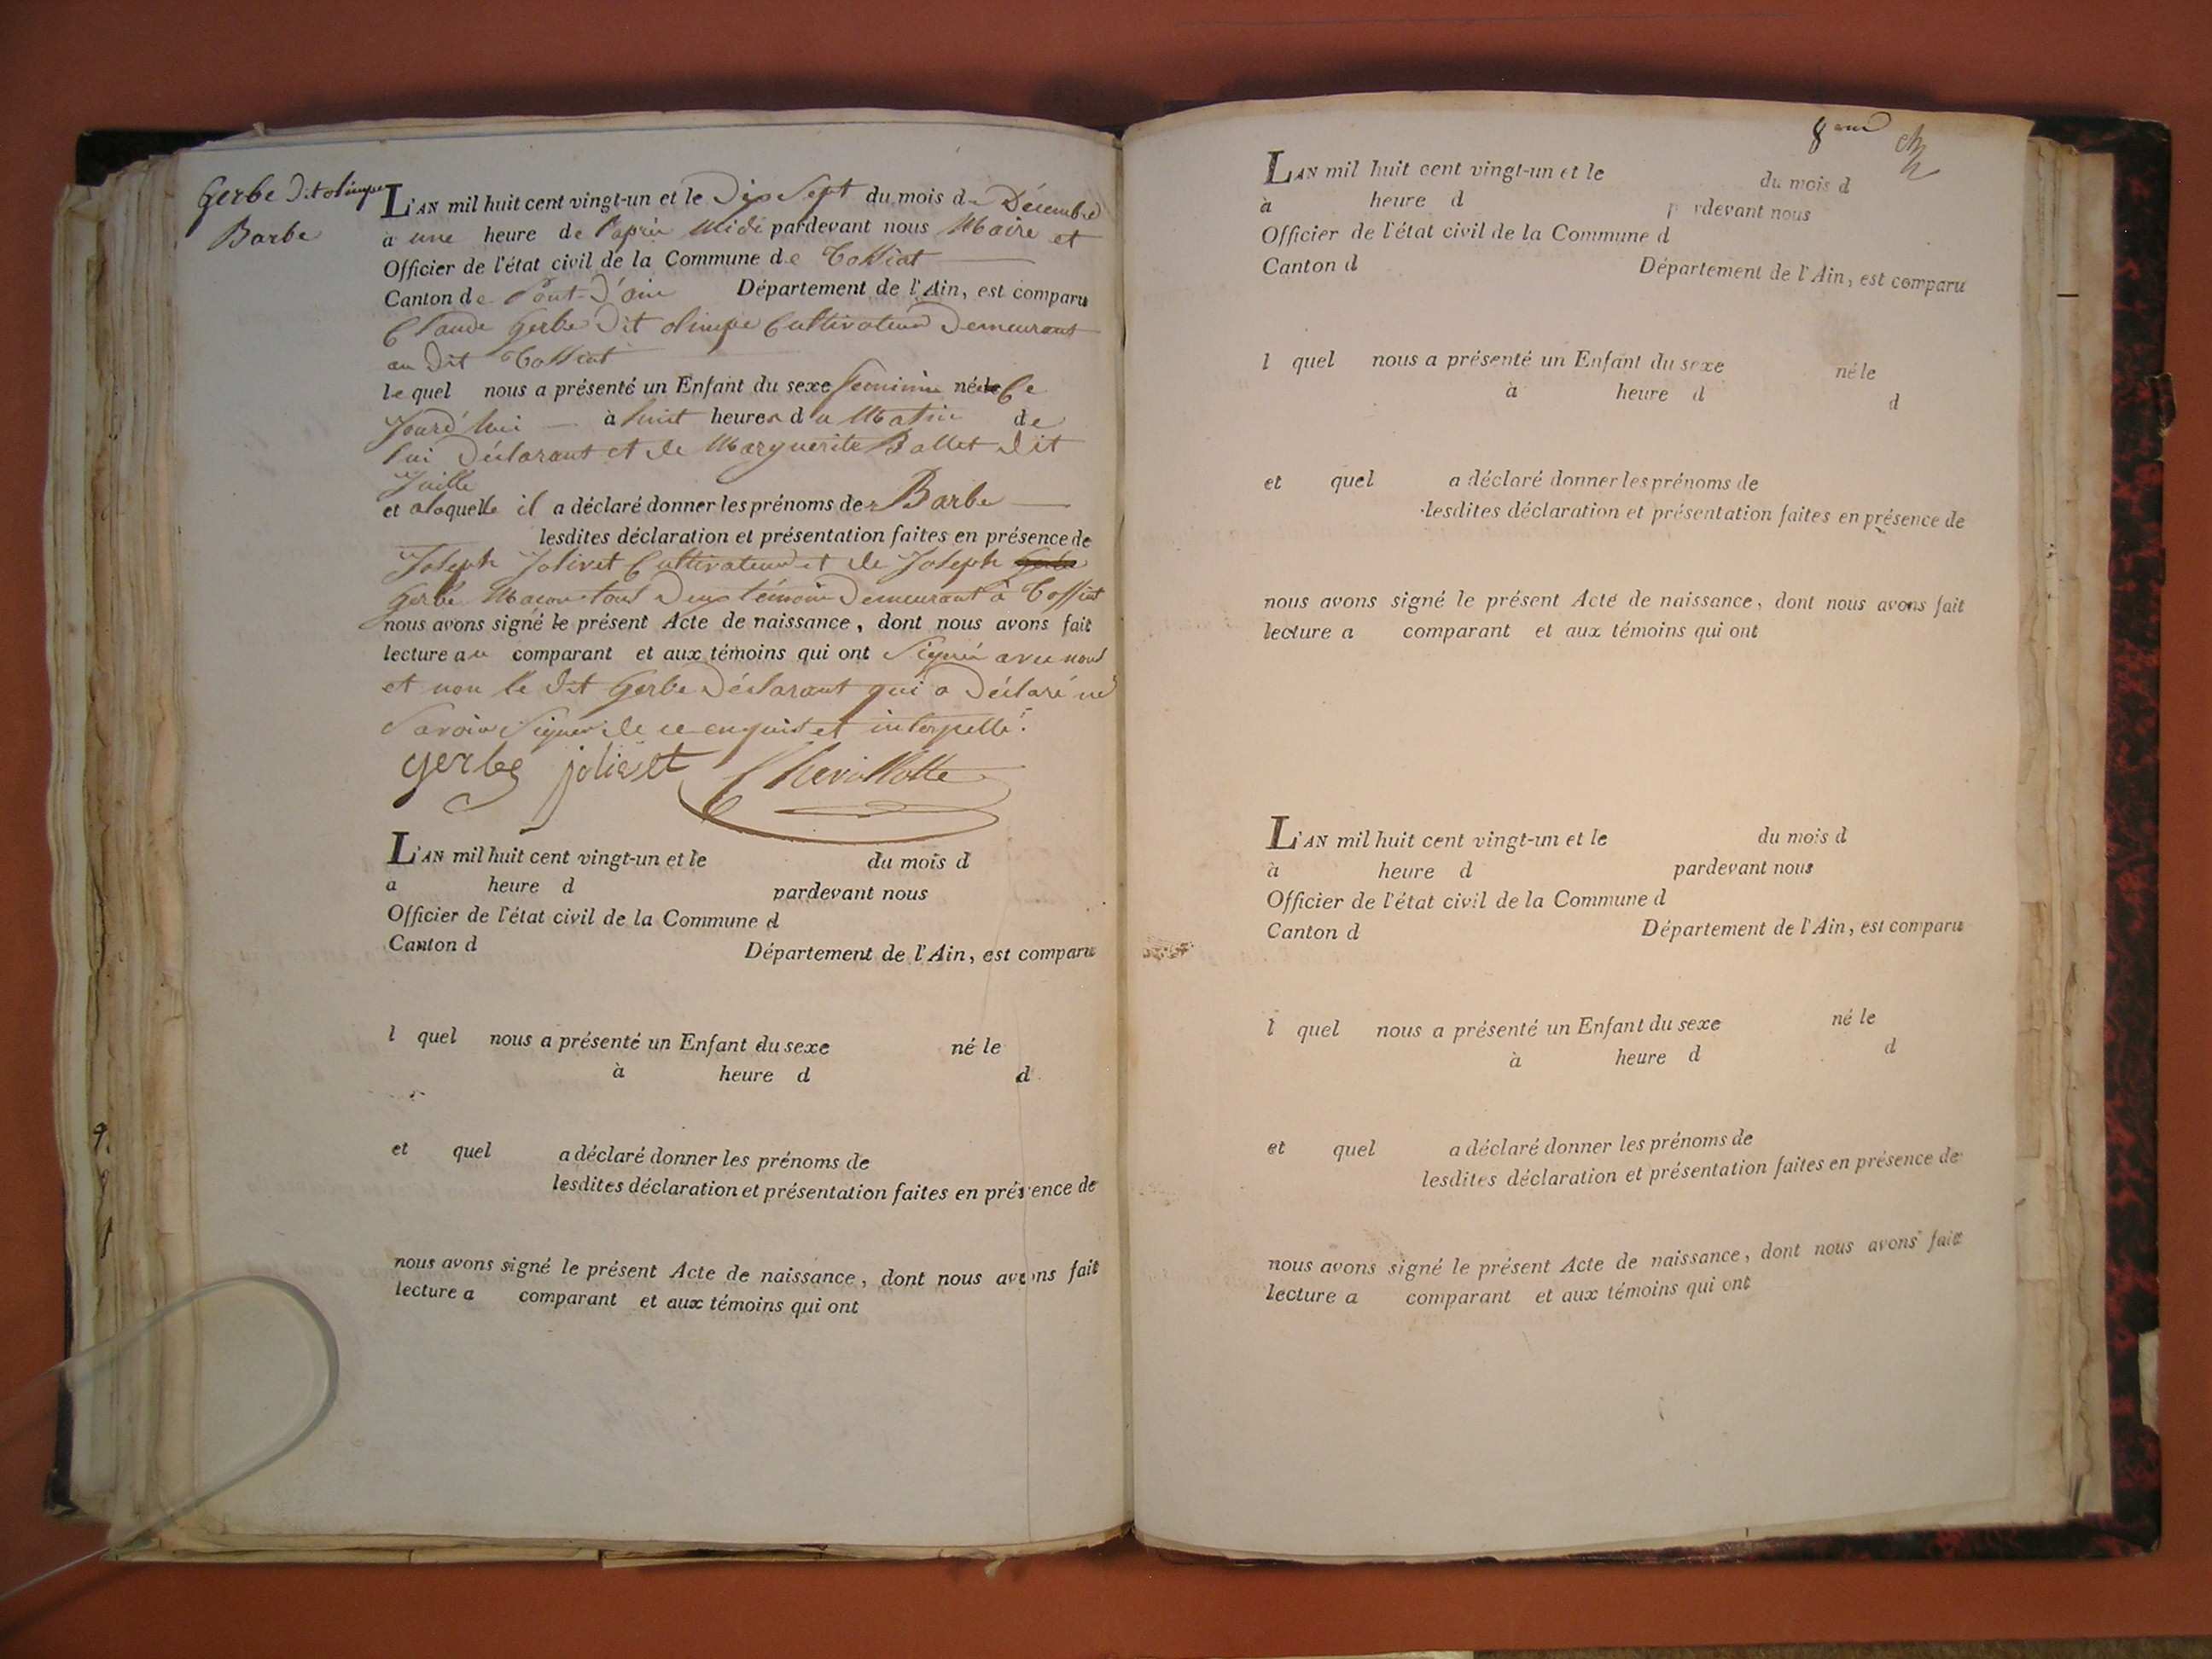 Gerbe dit olimpe
Barbe
L'AN mil huit cent vingt-un et le Dix Sept du mois de Décembre
à une heure de l'après Midi pardevant nous Maire et
Officier de l'état civil de la Commune de Tossiat
Canton de Pont-d'ain Département de l'Ain, est comparu
Claude Gerbe dit olimpe Cultivateur Demeurant
au dit Tossiat
le quel nous a présenté un Enfant du sexe feminin né le Ce
Jourd'hui à huit heures du Matin de
lui Déclarant et de Marguerite Ballet dit
Juille
et alaquelle il a déclaré donner les prénoms de Barbe
lesdites déclaration et présentation faites en présence de
Joseph Jolivet Cultivateur et de Joseph
Gerbe Macon tous Deux témoins Demeurant à Tossiat
nous avons signé le présent Acte de naissance, dont nous avons fait
lecture au comparant et aux témoins qui ont Signé avec nous
et non le dit Gerbe Déclarant qui a Déclaré ne
Savoir Signer de ce enquis et interpellé.
gerbe jolivet Chevillotte
L'AN mil huit cent vingt-un et le du mois d
a heure d pardevant nous
Officier de l'état civil de la Commune d
Canton d Département de l'Ain, est comparu
l quel nous a présenté un Enfant du sexe né le
à heure d d
et quel a déclaré donner les prénoms de
lesdites déclaration et présentation faites en présence de
nous avons signé le présent Acte de naissance, dont nous avons fait
lecture a comparant et aux témoins qui ont
L'AN mil huit cent vingt-un et le du mois d
à heure d pardevant nous
Officier de l'état civil de la Commune d
Canton d Département de l'Ain, est comparu
l quel nous a présenté un Enfant du sexe né le
à heure d d
et quel a déclaré donner les prénoms de
lesdites déclaration et présentation faites en présence de
nous avons signé le présent Acte de naissance, dont nous avons fait
lecture a comparant et aux témoins qui ont
L'AN mil huit cent vingt-un et le du mois d
à heure d pardevant nous
Officier de l'état civil de la Commune d
Canton d Département de l'Ain, est comparu
l quel nous a présenté un Enfant du sexe né le
à heure d d
et quel a déclaré donner les prénoms de
lesdites déclaration et présentation faites en présence de
nous avons signé le présent Acte de naissance, dont nous avons fait
lecture a comparant et aux témoins qui ont